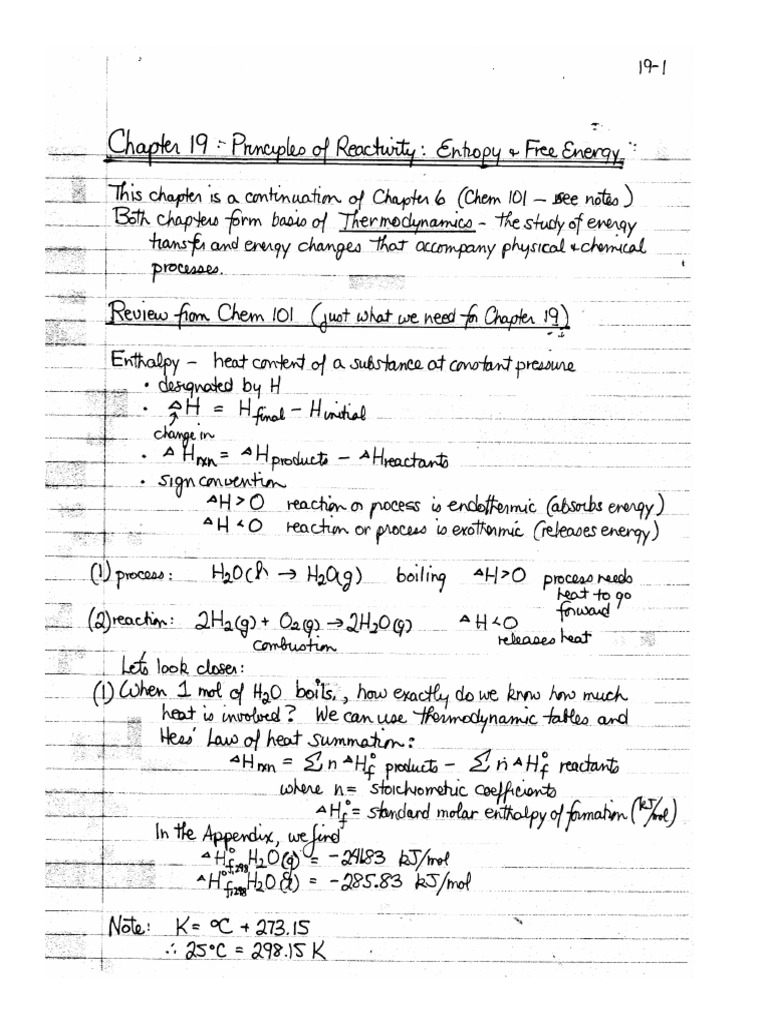 19-1
Chapter 19 :- Principles of Reactivity: Entropy & Free Energy
This chapter is a continuation of Chapter 6 (Chem 101 - see notes)
Both chapters form basis of Thermodynamics - the study of energy
transfer and energy changes that accompany physical & chemical
processes.
Review from Chem 101 (just what we need for Chapter 19)
Enthalpy - heat content of a substance at constant pressure
• designated by H
• ΔH = H final - H initial
change in
• ΔHrxn = ΔH products - ΔH reactants
• sign convention
ΔH > O reaction or process is endothermic (absorbs energy)
ΔH < O reaction or process is exothermic (releases energy)
(1) process: H2O(l) → H2O(g) boiling ΔH>O process needs
heat to go
forward
(2) reaction: 2H2(g) + O2(g) → 2H2O(g) ΔH<O
combustion releases heat
Lets look closer:
(1) When 1 mol of H2O boils, how exactly do we know how much
heat is involved? We can use thermodynamic tables and
Hess' Law of heat summation:
ΔHrxn = Σ n ΔHf° products - Σ n ΔHf° reactants
where n = stoichiometric coefficients
ΔHf° = standard molar enthalpy of formation (kJ/mol)
In the Appendix, we find
ΔH°f,298 H2O(g) = -241.83 kJ/mol
ΔH°f,298 H2O(l) = -285.83 kJ/mol
Note: K = °C + 273.15
∴ 25°C = 298.15 K